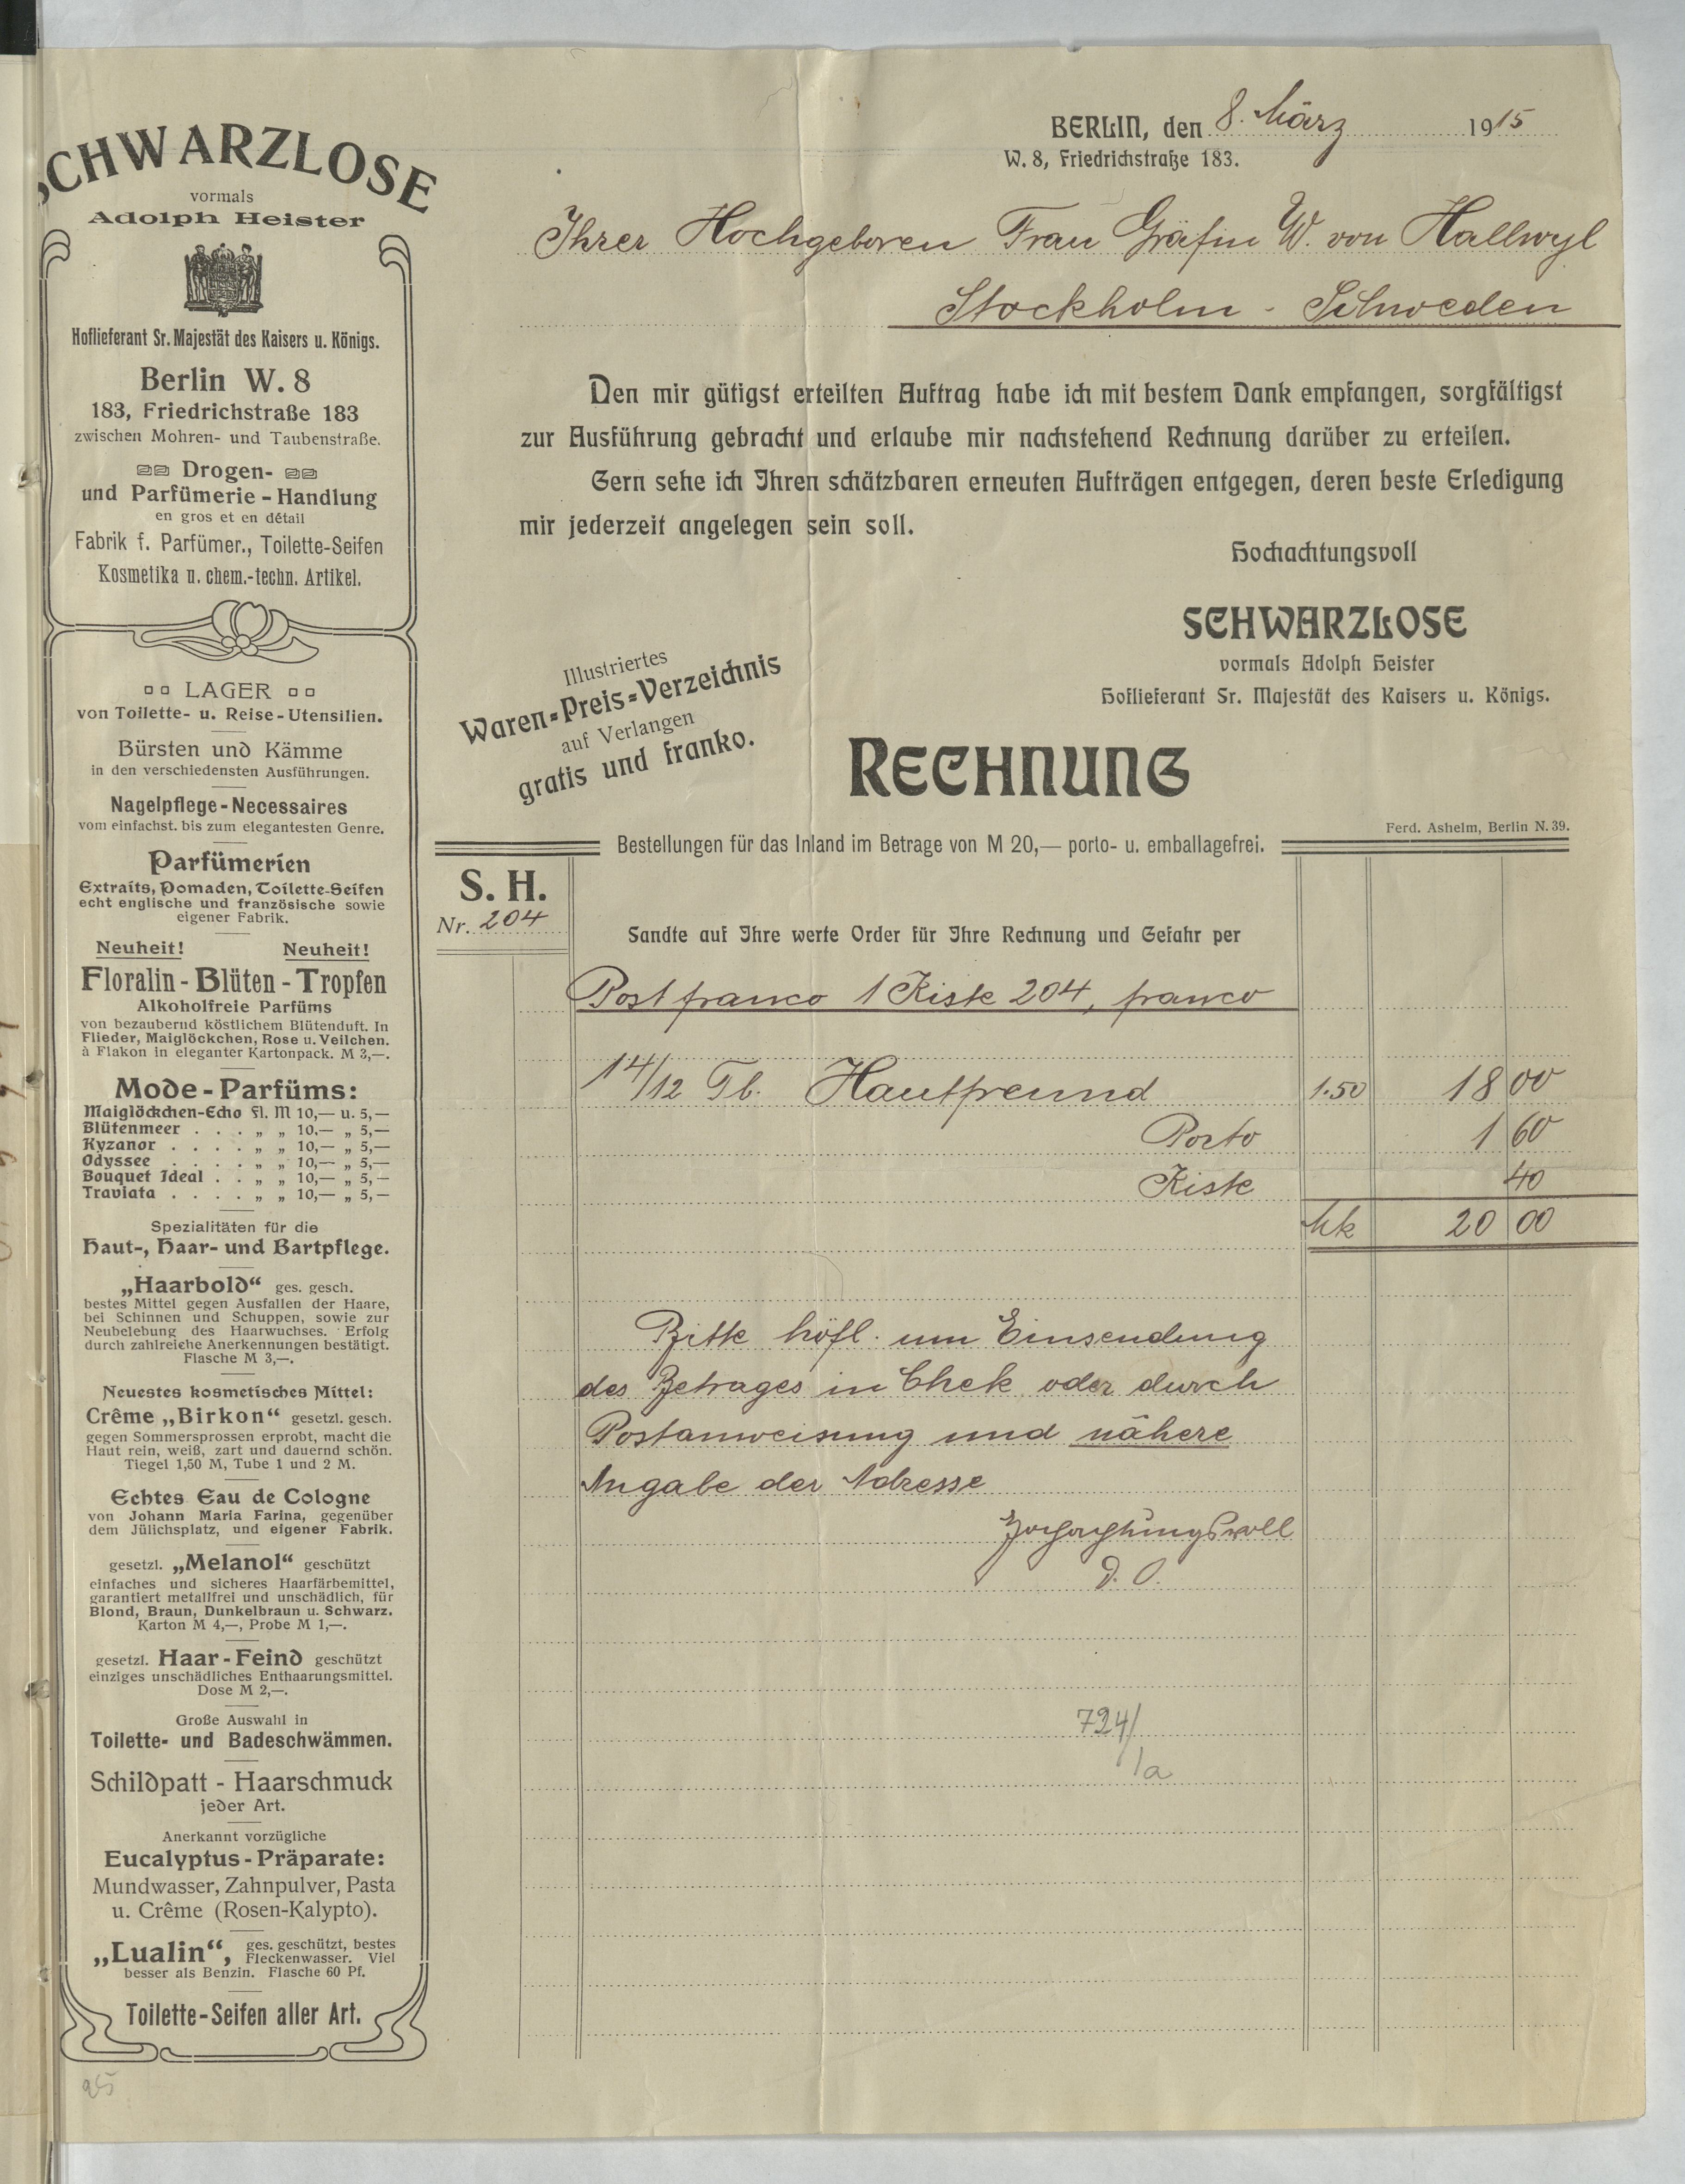 SCHWARZLOSE
vormals
Adolph Heister
Hoflieferant Sr. Majestät des Kaisers u. Königs.
Berlin W. 8
183, Friedrichstraße 183
zwischen Mohren- und Taubenstraße.
Drogen-
und Parfümerie-Handlung
en gros et en détail
Fabrik f. Parfümer., Toilette-Seifen
Kosmetika u. chem.-techn. Artikel.
LAGER
von Toilette- u. Reise-Utensilien.
Bürsten und Kämme
in den verschiedensten Ausführungen.
Nagelpflege-Necessaires
vom einfachst. bis zum elegantesten Genre.
Parfümerien
Extraits, Pomaden, Toilette-Seifen
echt englische und französische sowie
eigener Fabrik.
Neuheit! Neuheit!
Floralin-Blüten-Tropfen
Alkoholfreie Parfüms
von bezaubernd köstlichem Blütenduft. In
Flieder, Maiglöckchen, Rose u. Veilchen.
à Flakon in eleganter Kartonpack. M 3,—.
Mode-Parfüms:
Maiglöckchen-Echo Fl. M 10,— u. 5,—
Blütenmeer . . . „ „ 10,— „ 5,—
Kyzanor . . . . „ „ 10,— „ 5,—
Odyssee . . . . „ „ 10,— „ 5,—
Bouquet Ideal . . „ „ 10,— „ 5,—
Traviata . . . . „ „ 10,— „ 5,—
Spezialitäten für die
Haut-, Haar- und Bartpflege.
„Haarbold“ ges. gesch.
bestes Mittel gegen Ausfallen der Haare,
bei Schinnen und Schuppen, sowie zur
Neubelebung des Haarwuchses. Erfolg
durch zahlreiche Anerkennungen bestätigt.
Flasche M 3,—.
Neuestes kosmetisches Mittel:
Crême „Birkon“ gesetzl. gesch.
gegen Sommersprossen erprobt, macht die
Haut rein, weiß, zart und dauernd schön.
Tiegel 1,50 M, Tube 1 und 2 M.
Echtes Eau de Cologne
von Johann Maria Farina, gegenüber
dem Jülichsplatz, und eigener Fabrik.
gesetzl. „Melanol“ geschützt
einfaches und sicheres Haarfärbemittel,
garantiert metallfrei und unschädlich, für
Blond, Braun, Dunkelbraun u. Schwarz.
Karton M 4,—, Probe M 1,—.
gesetzl. Haar-Feind geschützt
einziges unschädliches Enthaarungsmittel.
Dose M 2,—.
Große Auswahl in
Toilette- und Badeschwämmen.
Schildpatt - Haarschmuck
jeder Art.
Anerkannt vorzügliche
Eucalyptus-Präparate:
Mundwasser, Zahnpulver, Pasta
u. Crême (Rosen-Kalypto).
„Lualin“, ges. geschützt, bestes
Fleckenwasser. Viel
besser als Benzin. Flasche 60 Pf.
Toilette-Seifen aller Art.
25
BERLIN, den 8. März 1915
W. 8, Friedrichstraße 183.
Ihrer Hochgeboren Frau Gräfin W. von Hallwyl
Stockholm - Schweden
Den mir gütigst erteilten Auftrag habe ich mit bestem Dank empfangen, sorgfältigst
zur Ausführung gebracht und erlaube mir nachstehend Rechnung darüber zu erteilen.
Gern sehe ich Ihren schätzbaren erneuten Aufträgen entgegen, deren beste Erledigung
mir jederzeit angelegen sein soll.
Hochachtungsvoll
SCHWARZLOSE
vormals Adolph Heister
Hoflieferant Sr. Majestät des Kaisers u. Königs.
Illustriertes
Waren-Preis-Verzeichnis
auf Verlangen
gratis und franko.
RECHNUNG
Ferd. Ashelm, Berlin N. 39.
Bestellungen für das Inland im Betrage von M 20,— porto- u. emballagefrei.
S. H.
Nr. 204
Sandte auf Ihre werte Order für Ihre Rechnung und Gefahr per
Post franco 1 Kiste 204, franco
14/12 Tb. Hautfreund 1.50 18 00
Porto 1 60
Kiste 40
Mk 20 00
Bitte höfl. um Einsendung
des Betrages in Chek oder durch
Postanweisung und nähere
Angabe der Adresse
Hochachtungsvoll
D. O.
724/
1a